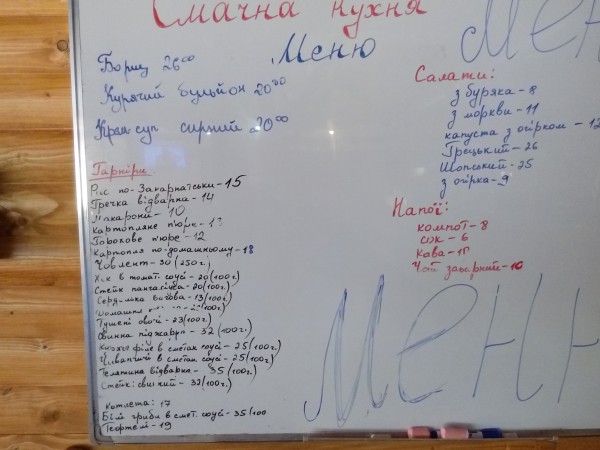 Смачна кухня
Меню
Борщ 26⁰⁰
Курячий бульйон 20⁰⁰
Крем суп сирний 20⁰⁰
Гарніри
Рис по-Закарпатськи - 15
Гречка відварна - 14
Макарони - 10
Картопляне пюре -
Горохове пюре - 12
Картопля по-домашньому - 18
Човлент - 30 (250 г.)
Хек в томат. соусі - 20 (100 г.)
Стейк пангасіуса - 20 (100 г.)
Серделька - 13 (100 г.)
Домашня (100 г.)
Тушені овочі - 23 (100 г.)
піджарка - 32 (100 г.)
Куряче філе в сметан соусі - 25 (100 г.)
в сметан. соусі - 25 (100 г.)
Телятина відварна - 35 (100 г.)
Стейк: свиний - 32 (100 г.)
Котлета: 17
Білі гриби в смет. соусі - 35 (100
- 19
Салати:
з буряка - 8
з моркви - 11
капуста з огірком - 12
Грецький - 26
Шопський - 25
з огірка - 9
Напої:
компот - 8
сок - 6
кава -
Чай - 10
Мен
Менн